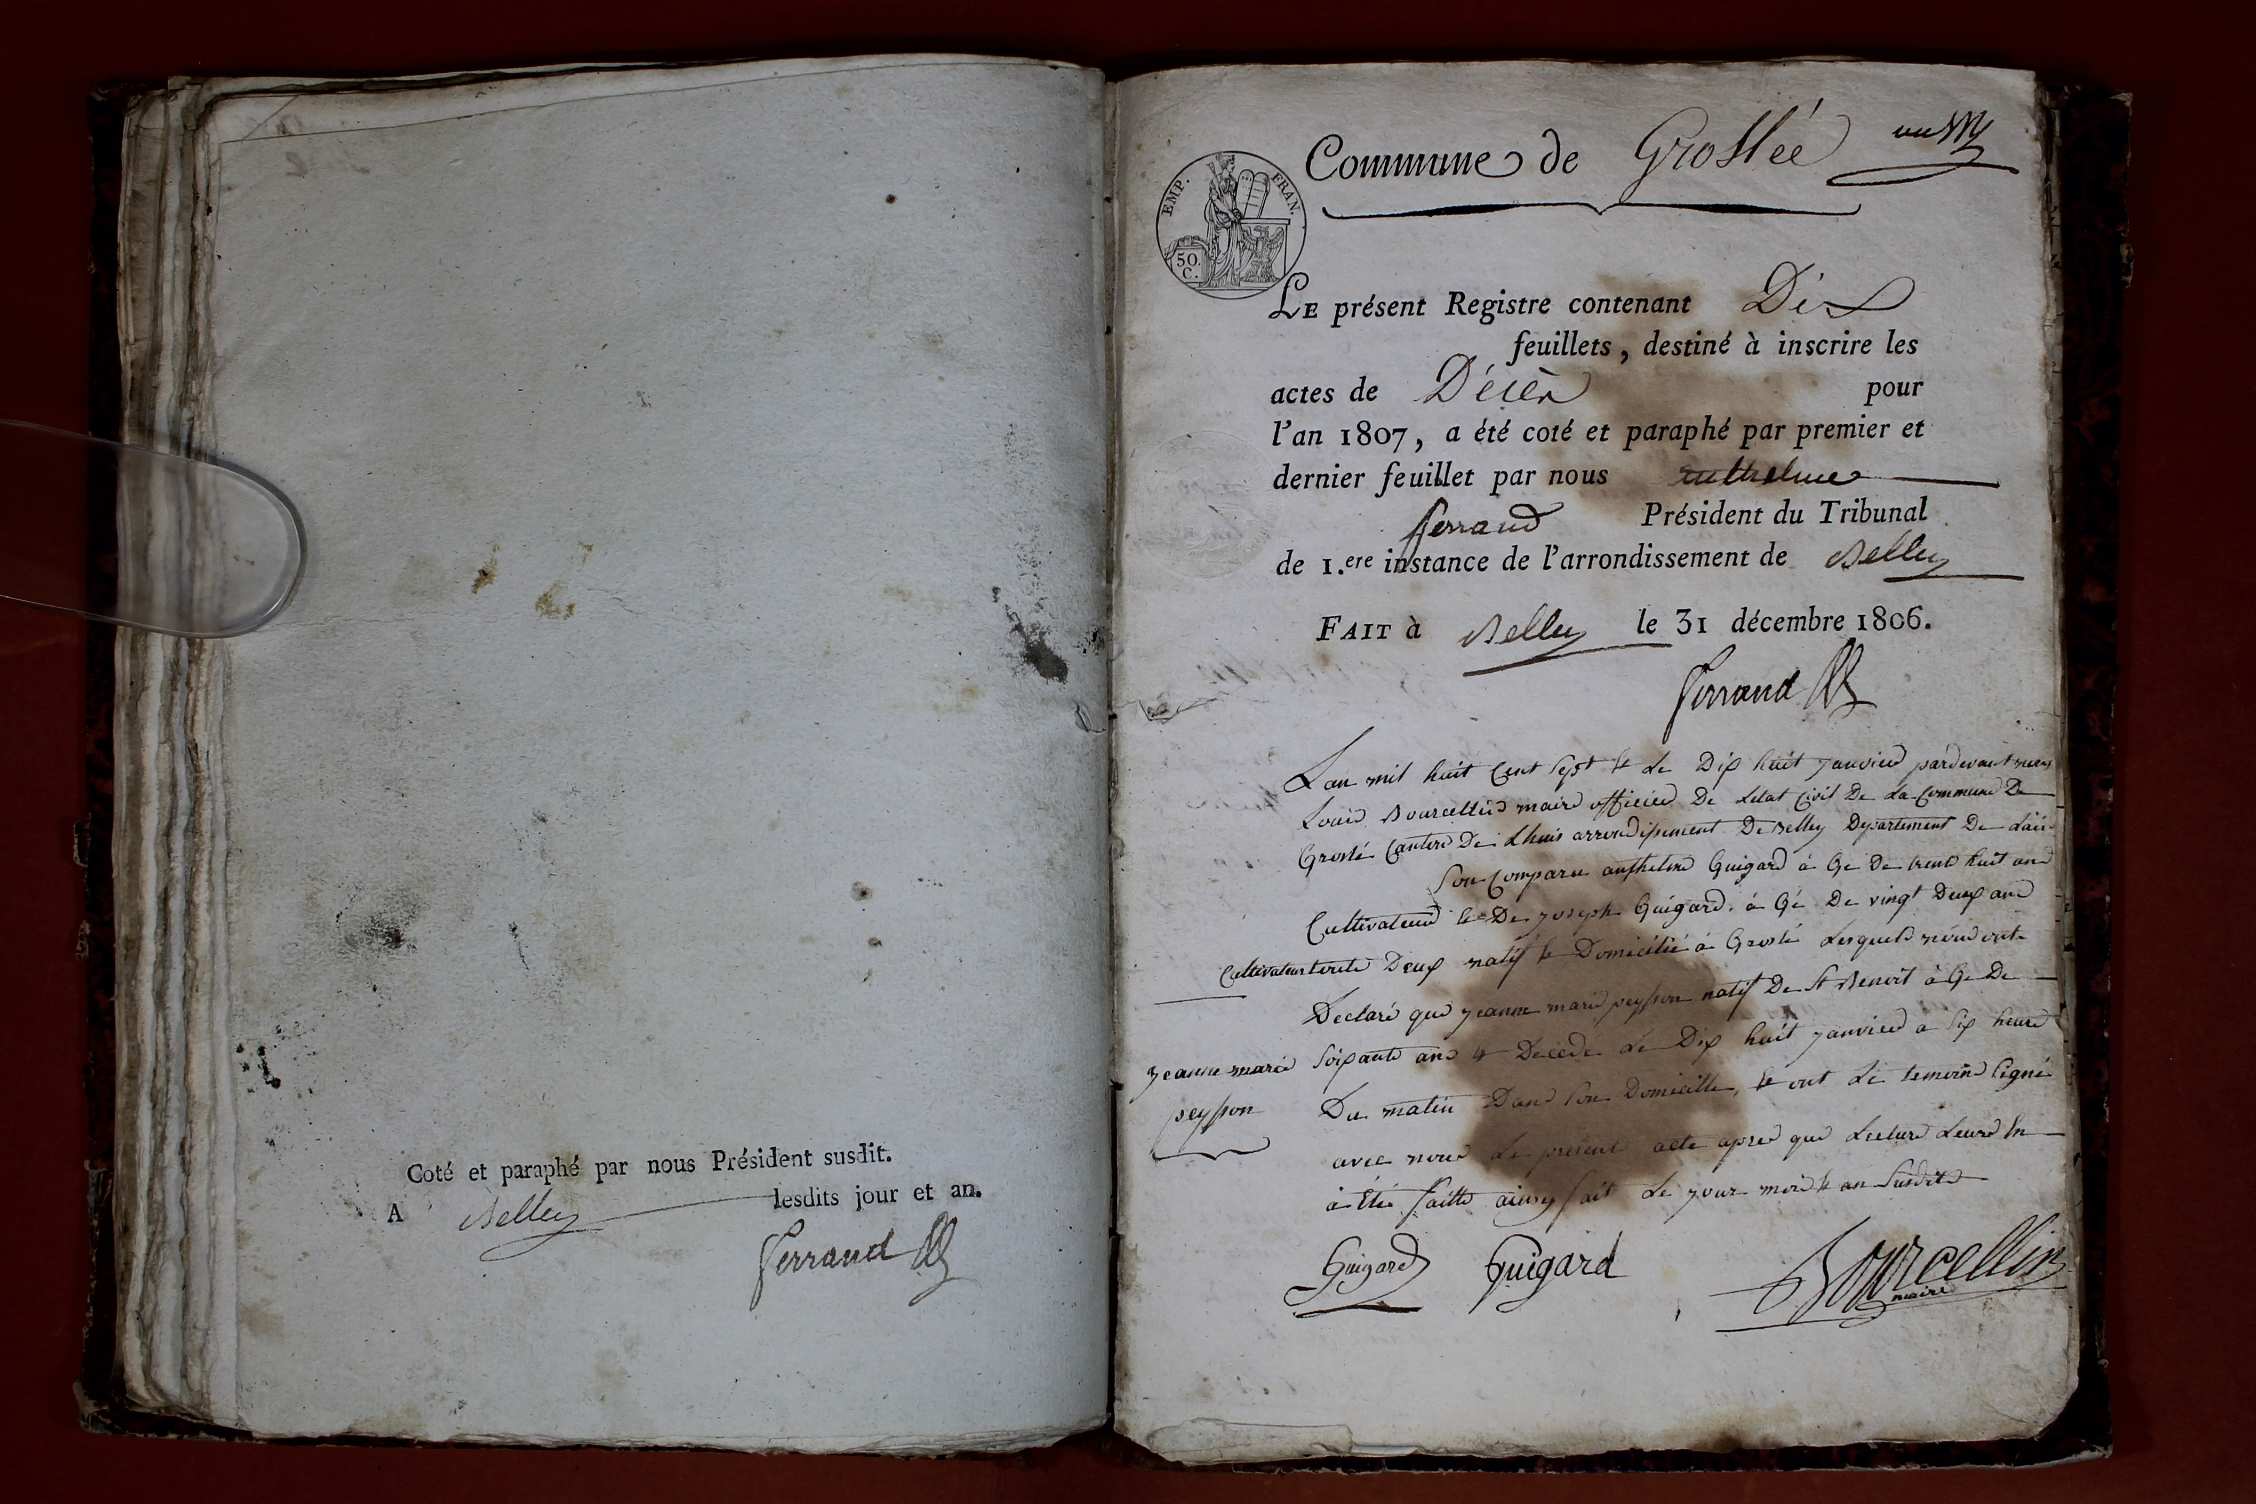 Coté et paraphé par nous Président susdit.
A Belley lesdits jour et an.
Ferrand
Commune de Groslée
un
EMP. FRAN.
50.
C.
LE présent Registre contenant Dix
feuillets, destiné à inscrire les
actes de Décès pour
l'an 1807, a été coté et paraphé par premier et
dernier feuillet par nous anthelme
ferrand Président du Tribunal
de 1.ere instance de l'arrondissement de Belley
FAIT à Belley le 31 décembre 1806.
Ferrand
Lan mil huit Cent Sept & Le Dix huit janvier pardevant nous
Louis Bourcellin maire officier De Letat Civil De La Commune De
Groslé Canton De Lhuis arrondissement De Belley Departement De Lain
Son Comparu anthelme Guigard à Gé De trente huit and
Cultivateur & De joseph Guigard à Gé De vingt Deux and
Cultivateur toute Deux natif & Domicilié à Groslé Lesquels nous ont
Declaré que jeanne marie peysson natif De St Benoit à Ge De
jeanne marie
peysson
Soixante ans Decedé Le Dix huit janvier a Six heure
Du matin Dans Son Domicille, & ont Lé temoins Signé
avec nous Le present acte apres que Lecture Leurs En
à Été faitte ainsy fait Le jour mois & an Susdits
Guigard Guigard Bourcellin
maire